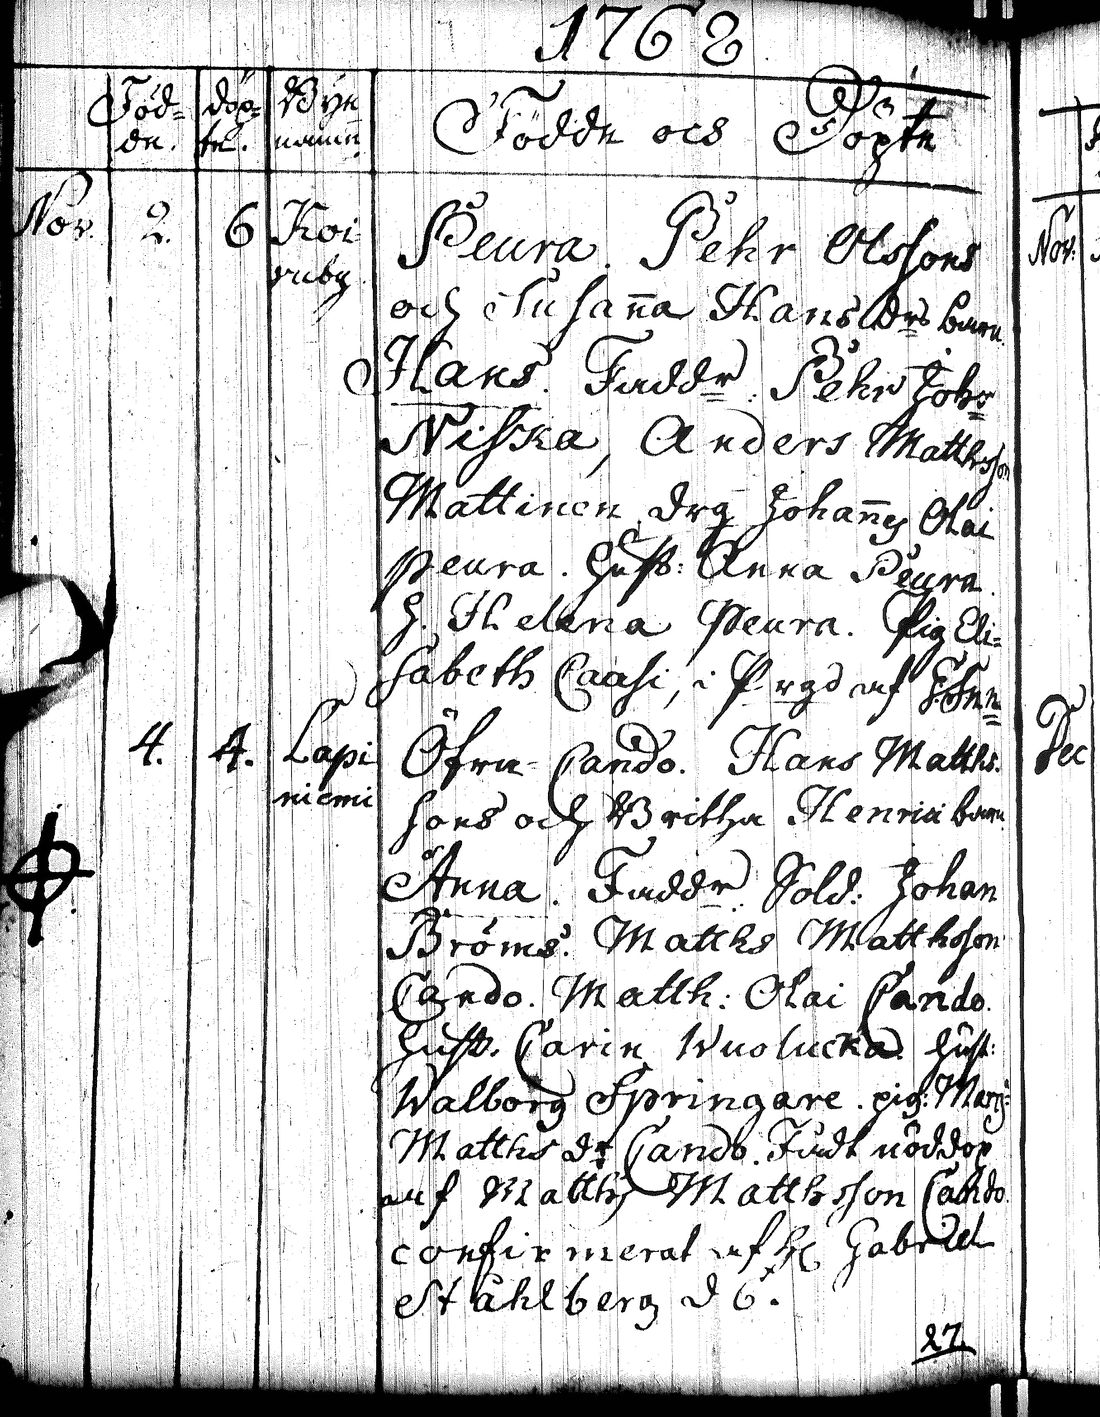 1762
Föd= döp= Byn
de. te. namn. Födde ocs Döpte
Nov. 2. 6 Koi Peura. Pehr Olssons
ruby och Susanna Hans drs barn
Hans. Faddr. Pehr Johs
Niska, Anders Matthsson
Mattinen drg Johannes Olai
Peura. Hust: Anna Peura
H. Helena Peura. Pig Eli=
sabeth Caasi, i Prgd af
4. 4. Lapi Öfra Cando. Hans Matths.
niemi sons och Britha Henrici barn
Anna. Faddr. Sold: Johan
Bröms. Matths Matthsson
Cando. Matth: Olai Cando.
Hust. Carin Wuolucka. Hust:
Walborg Springare. pig: Marg:
Matths dr Cando. Fadt nöddop
af Matths Matthsson Cando.
confirmerat af H Gabriel
Ståhlberg d 6.
27.
Nov.
Dec